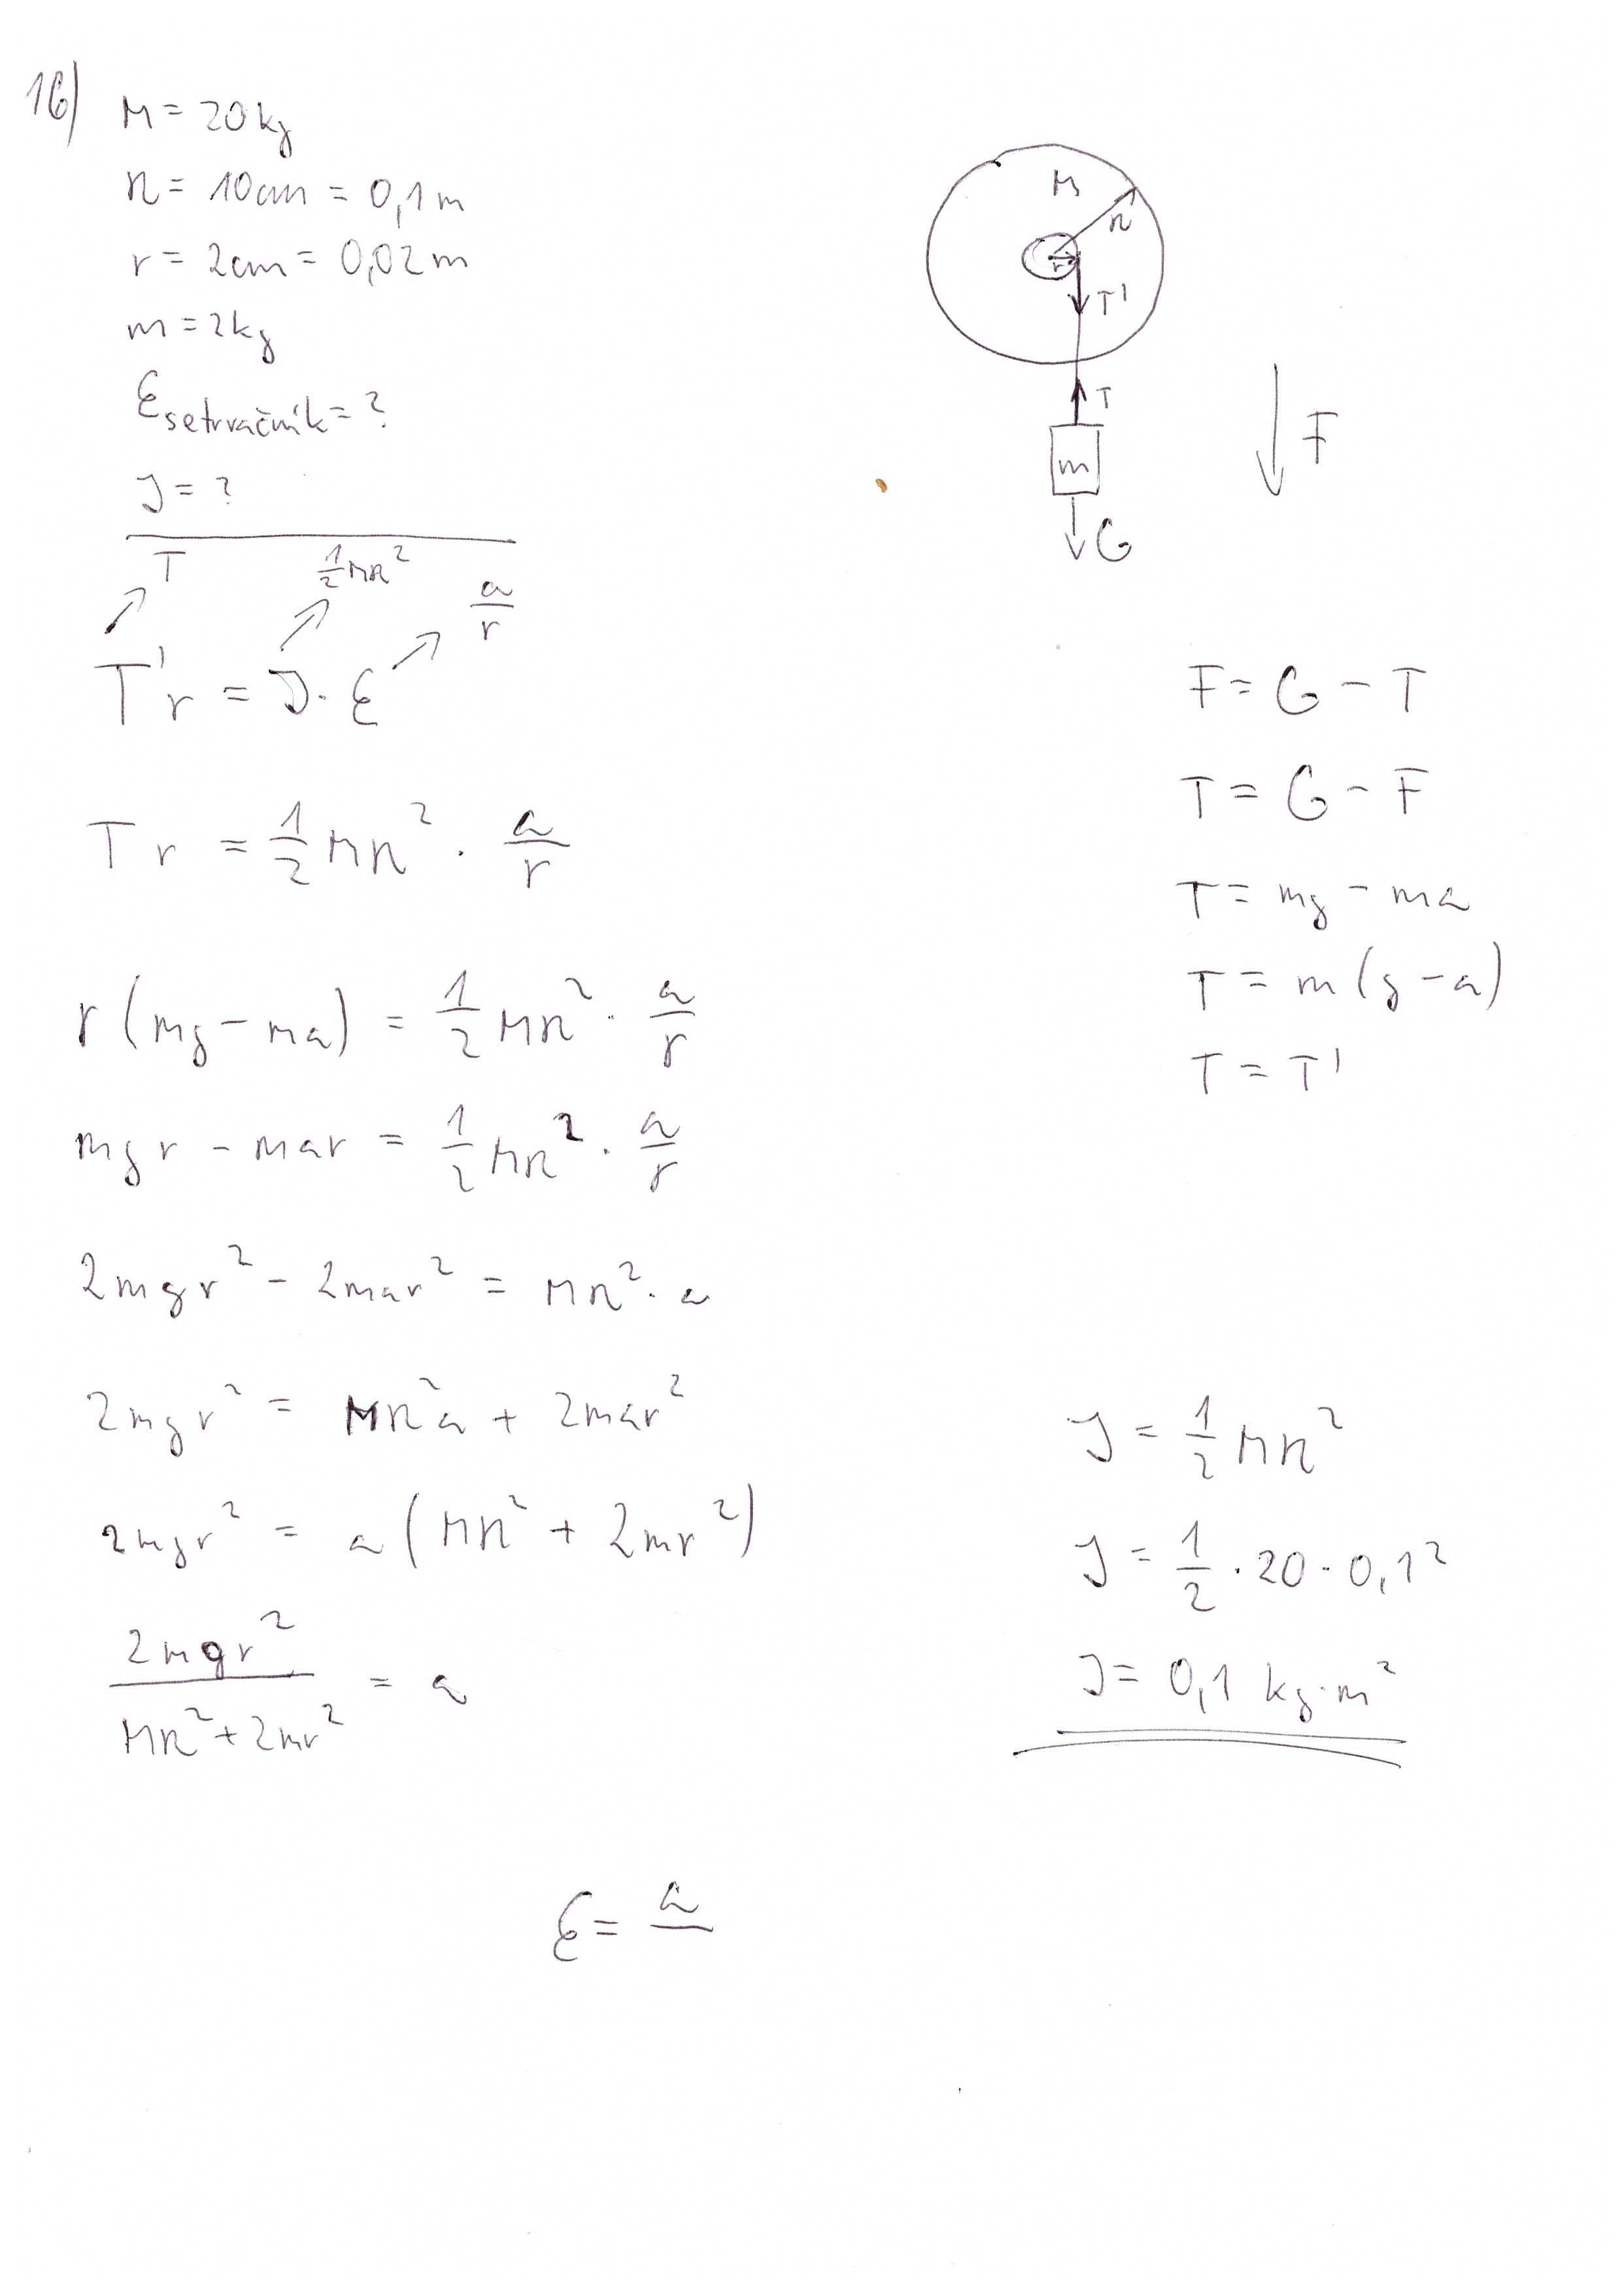 16)
M = 20kg
R = 10cm = 0,1m
r = 2cm = 0,02m
m = 2kg
ε setrvačník = ?
J = ?
T
1/2 MR²
a/r
T'r = J · ε
Tr = 1/2 MR² · a/r
r (mg - ma) = 1/2 MR² · a/r
mgr - mar = 1/2 MR² · a/r
2mgr² - 2mar² = MR² · a
2mgr² = MR²a + 2mar²
2mgr² = a (MR² + 2mr²)
2mgr² / MR² + 2mr² = a
ε = a
M
R
r
T'
T
m
G
F
F = G - T
T = G - F
T = mg - ma
T = m (g - a)
T = T'
J = 1/2 MR²
J = 1/2 · 20 · 0,1²
J = 0,1 kg·m²